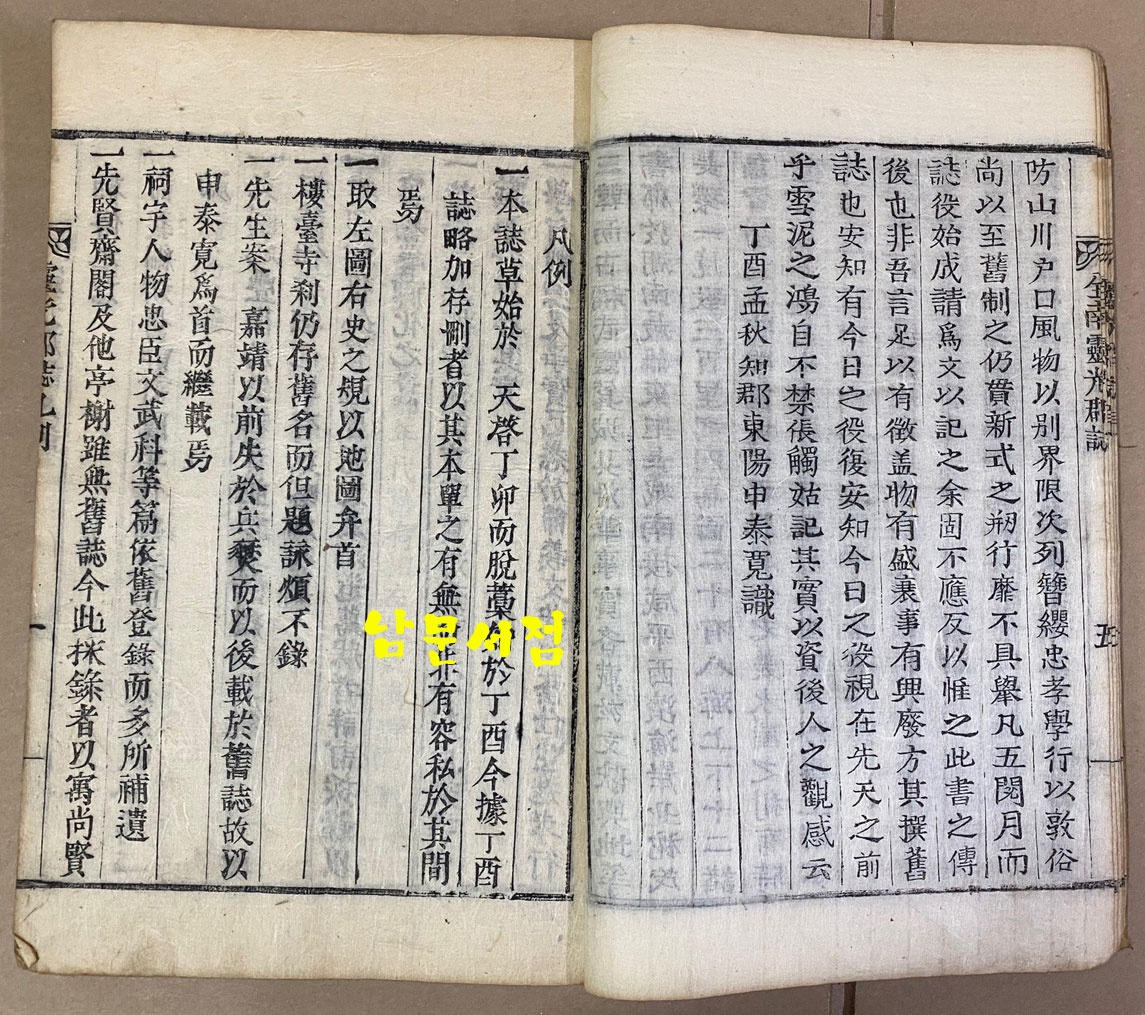 全南靈光郡誌
五
防山川户口風物以别界限次列簪纓忠孝學行以敦俗
尚以至舊制之仍貫新式之刱行靡不具舉凡五閱月而
誌役始成請爲文以記之余固不應反以惟之此書之傳
後也非吾言足以有徵盖物有盛衰事有興廢方其撰舊
誌也安知有今日之役復安知今日之役視在先天之前
乎雪泥之鴻自不禁張觸姑記其實以資後人之觀感云
丁酉孟秋知郡東陽申泰寬識
凡例
一本誌草始於 天啓丁卯而脫藁 於丁酉今據丁酉
誌略加存刪者以其本單之有無 非有容私於其間
焉
一取左圖右史之規以地圖弁首
一樓臺寺刹仍存舊名而但題詠煩不錄
一先生案 嘉靖以前失於兵燹而以後載於舊誌故以
申泰寬爲首而繼載焉
一祠宇人物忠臣文武科等篇依舊登錄而多所補遺
一先賢齋閣及他亭榭雖無舊誌今此採錄者以寓尚賢
靈光郡誌凡例
一
남문서점